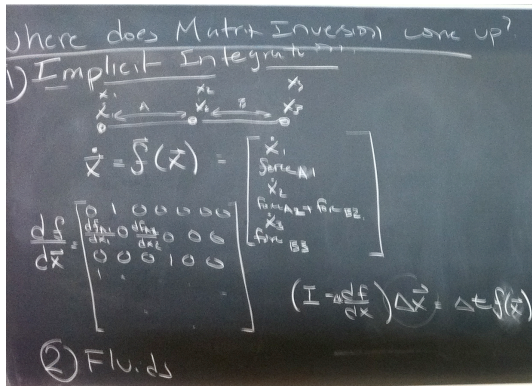 Where does Matrix Inversion come up?
1) Implicit Integration
x₁ x₂ x₃
ẋ₁ A ẋ₂ B ẋ₃
ẋ = f(x) = [ẋ₁
force A1
ẋ₂
force A2 + force B2
ẋ₃
force B3]
df/dx = [0 1 0 0 0 0
dfA1/dx1 0 dfA1/dx2 0 0 0
0 0 0 1 0 0
1
]
(I - Δt df/dx) Δx = Δt f(x)
2 Fluids